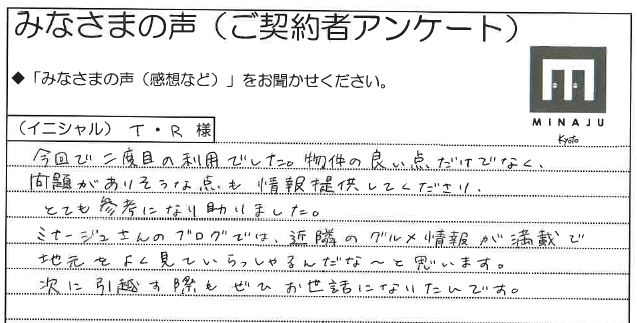 みなさまの声（ご契約者アンケート）
◆「みなさまの声（感想など）」をお聞かせください。
MINAJU
Kyoto
（イニシャル） T・R 様
今回で二度目の利用でした。物件の良い点だけでなく、
問題がありそうな点も情報提供してくださり、
とても参考になり助りました。
ミナージュさんのブログでは、近隣のグルメ情報が満載で
地元をよく見ていらっしゃるんだな～と思います。
次に引越す際もぜひお世話になりたいです。